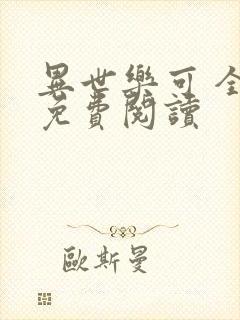 異世樂可 全
免費閱讀
歐斯曼